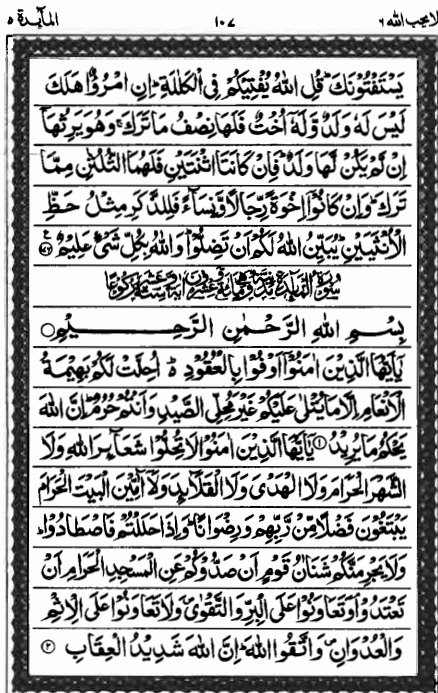 لا يحب الله ٦ ١٠٧ المآئدة ٥
يَسْتَفْتُوْنَكَ ؕ قُلِ اللّٰهُ يُفْتِيْكُمْ فِي الْكَلٰلَةِ ؕ اِنِ امْرُؤٌا هَلَكَ
لَيْسَ لَهٗ وَلَدٌ وَّلَهٗۤ اُخْتٌ فَلَهَا نِصْفُ مَا تَرَكَ ۚ وَهُوَ يَرِثُهَاۤ
اِنْ لَّمْ يَكُنْ لَّهَا وَلَدٌ ؕ فَاِنْ كَانَتَا اثْنَتَيْنِ فَلَهُمَا الثُّلُثٰنِ مِمَّا
تَرَكَ ؕ وَاِنْ كَانُوْۤا اِخْوَةً رِّجَالًا وَّنِسَآءً فَلِلذَّكَرِ مِثْلُ حَظِّ
الْاُنْثَيَيْنِ ؕ يُبَيِّنُ اللّٰهُ لَكُمْ اَنْ تَضِلُّوْا ؕ وَاللّٰهُ بِكُلِّ شَيْءٍ عَلِيْمٌ
سورة المآئدة مدنية
بِسْمِ اللّٰهِ الرَّحْمٰنِ الرَّحِيْمِ
يٰۤاَيُّهَا الَّذِيْنَ اٰمَنُوْۤا اَوْفُوْا بِالْعُقُوْدِ ؕ اُحِلَّتْ لَكُمْ بَهِيْمَةُ
الْاَنْعَامِ اِلَّا مَا يُتْلٰى عَلَيْكُمْ غَيْرَ مُحِلِّي الصَّيْدِ وَاَنْتُمْ حُرُمٌ ؕ اِنَّ اللّٰهَ
يَحْكُمُ مَا يُرِيْدُ ۝۱ يٰۤاَيُّهَا الَّذِيْنَ اٰمَنُوْا لَا تُحِلُّوْا شَعَآئِرَ اللّٰهِ وَلَا
الشَّهْرَ الْحَرَامَ وَلَا الْهَدْيَ وَلَا الْقَلَآئِدَ وَلَاۤ آٰمِّيْنَ الْبَيْتَ الْحَرَامَ
يَبْتَغُوْنَ فَضْلًا مِّنْ رَّبِّهِمْ وَرِضْوَانًا ؕ وَاِذَا حَلَلْتُمْ فَاصْطَادُوْا ؕ
وَلَا يَجْرِمَنَّكُمْ شَنَاٰنُ قَوْمٍ اَنْ صَدُّوْكُمْ عَنِ الْمَسْجِدِ الْحَرَامِ اَنْ
تَعْتَدُوْا ۘ وَتَعَاوَنُوْا عَلَى الْبِرِّ وَالتَّقْوٰى ۪ وَلَا تَعَاوَنُوْا عَلَى الْاِثْمِ
وَالْعُدْوَانِ ۪ وَاتَّقُوا اللّٰهَ ؕ اِنَّ اللّٰهَ شَدِيْدُ الْعِقَابِ ۝۲